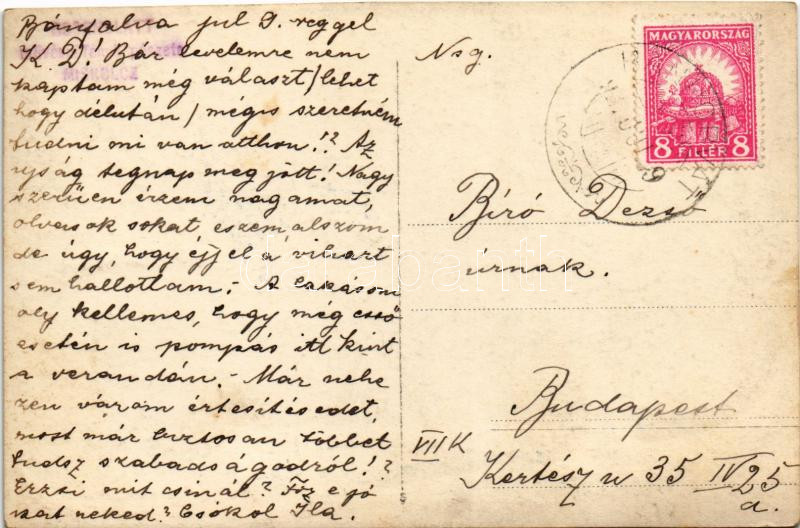 Bányalva jul 9. reggel
K D! Bár levelemre nem
kaptam még választ/lehet
hogy délután/mégis szeretném
tudni mi van otthon!? Az
ujság tegnap megjött! Nagy
szerüen érzem magamat,
olvasok sokat eszem alszom
de úgy, hogy éjjel a vihart
sem hallottam.- A lakásom
oly kellemes, hogy még eső
esetén is pompás itt kint
a verandán.- Már nehe
zen várom értesítésedet,
most már biztosan többet
tudsz szabadságodról!?
Erzsi mit csinál? Főz e jó
kat neked? Csókol Ila.
Nsg.
MAGYARORSZÁG
8 FILLÉR 8
Bíró Dezső
úrnak.
Budapest
VIIK
Kertész u 35 IV 25
a.
darabanth